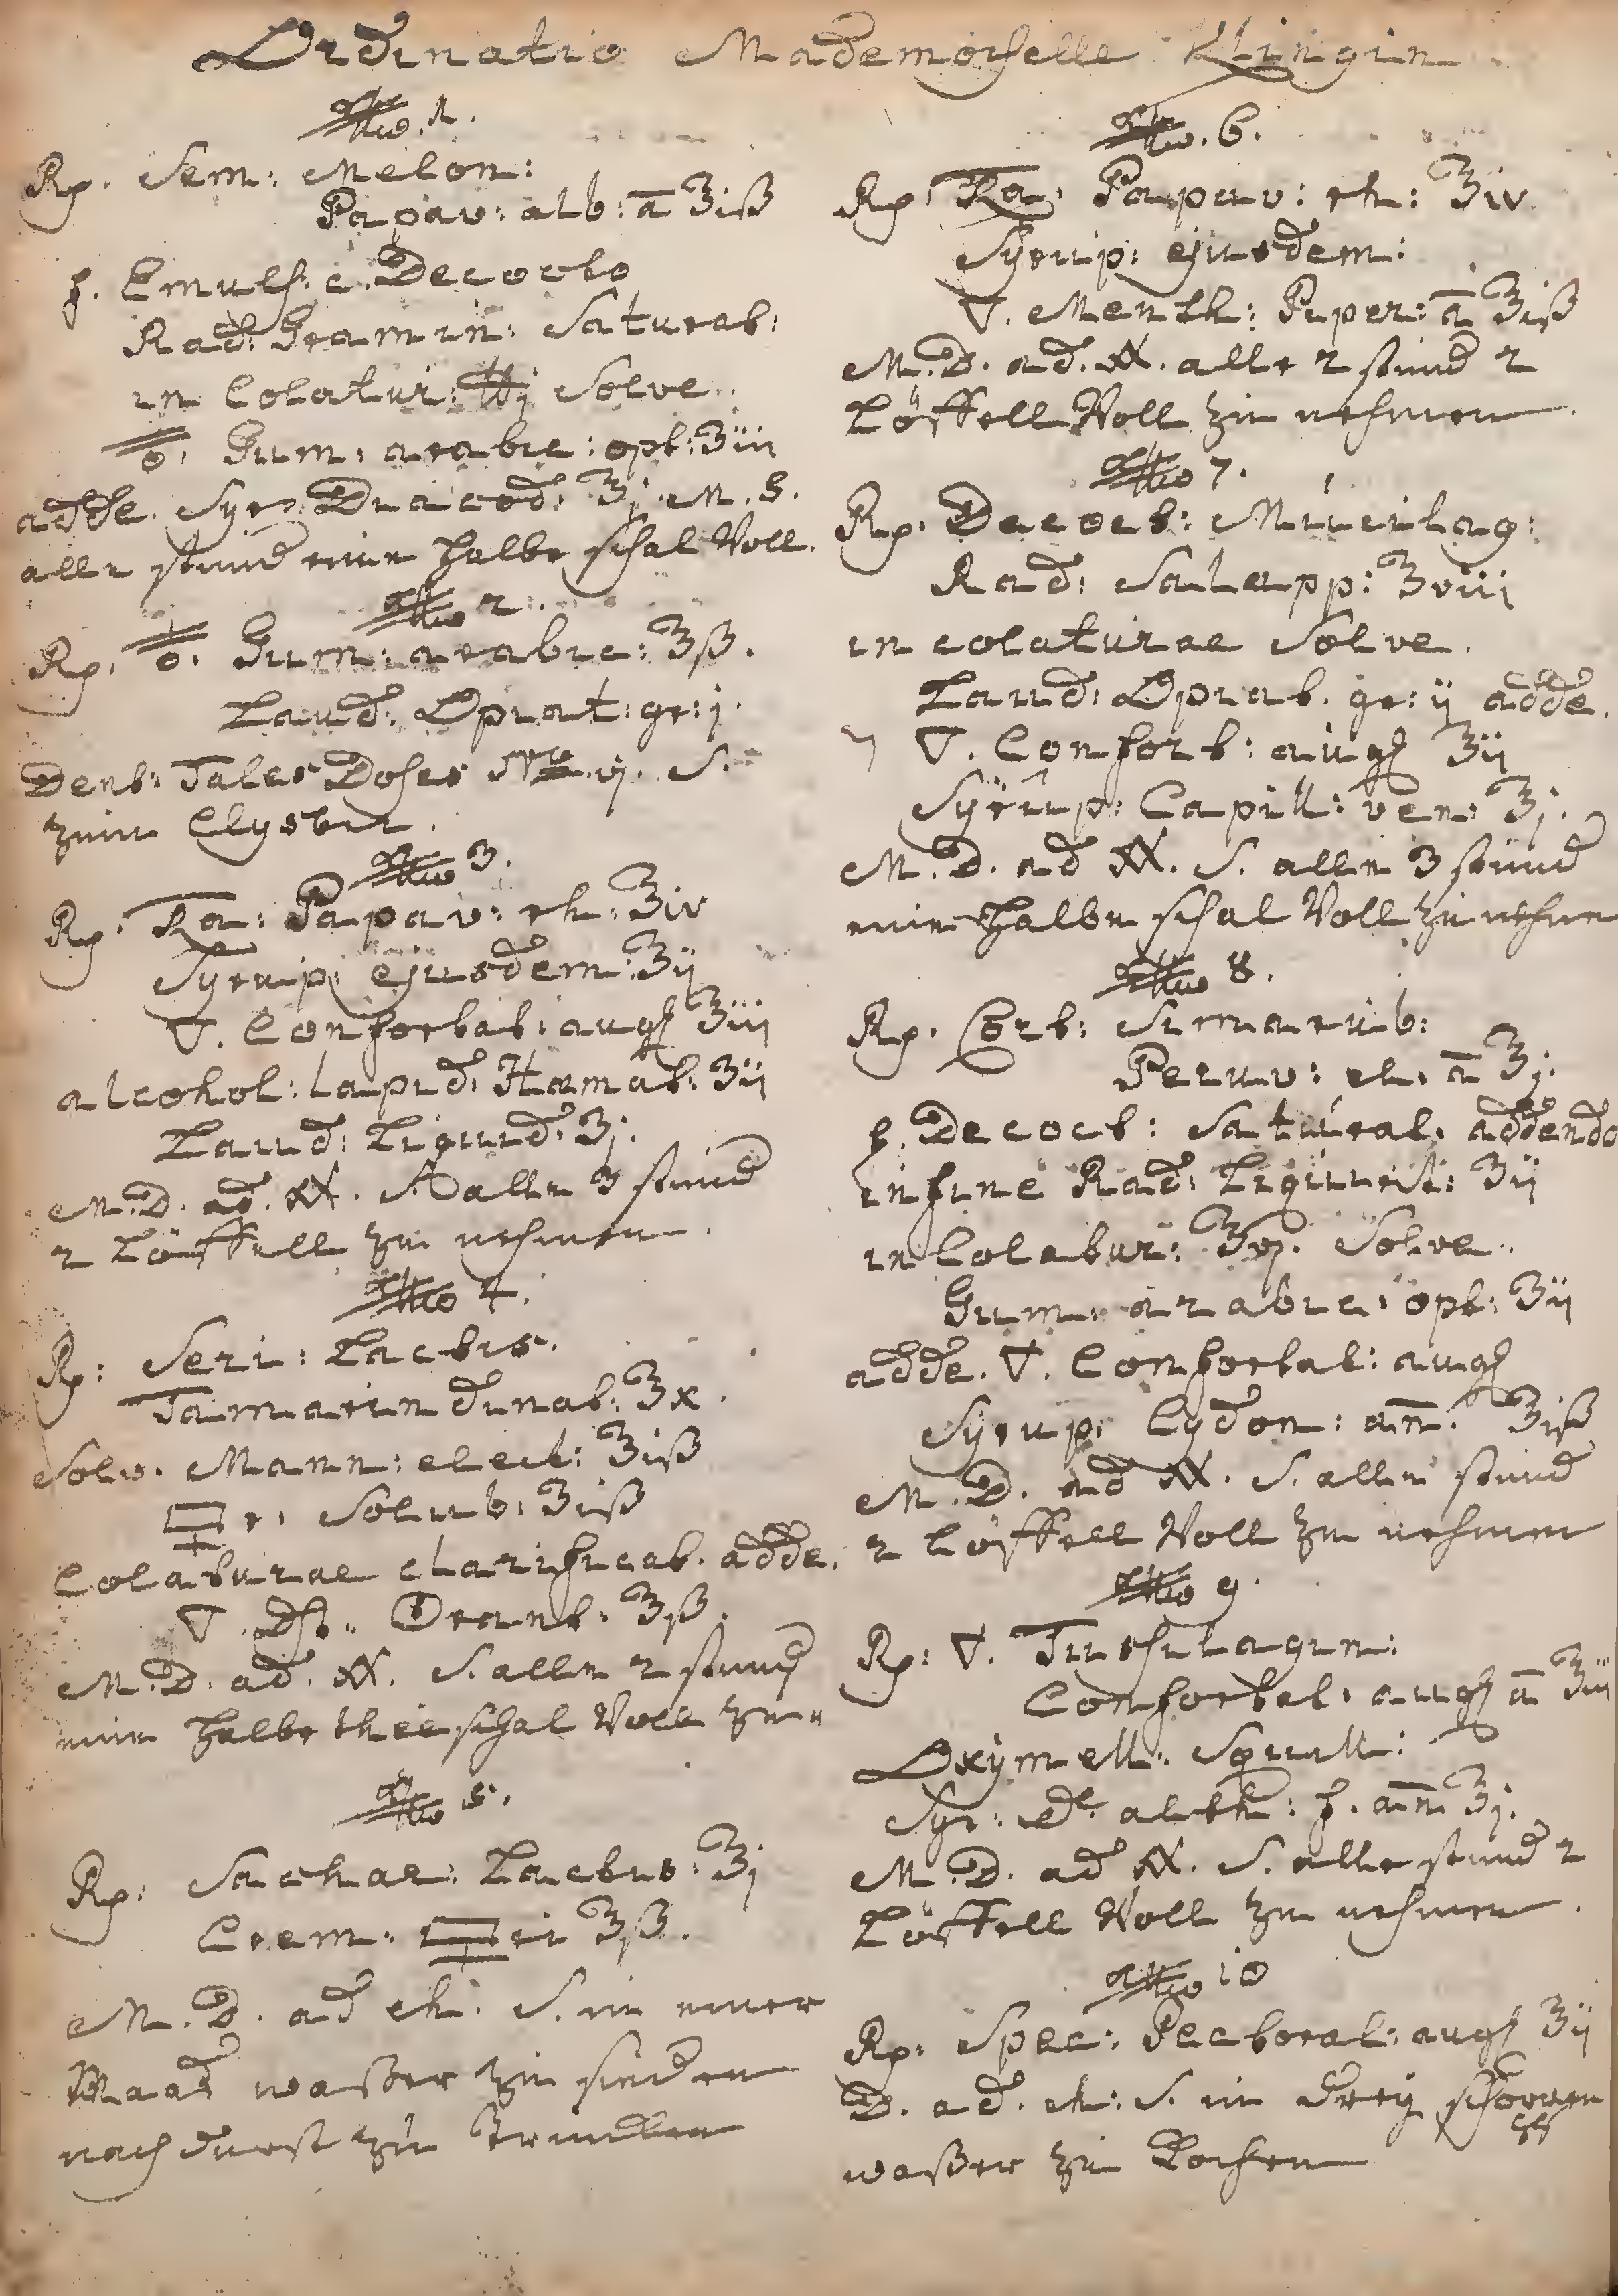 Ordinatio Mademoiselle Klingin
Nro. 1.
Rp. Sem: Melon:
Papav: alb: ā ʒiß
f. Emuls: c. Decocto
Rad: Gramin: Saturat:
in Colatur: ℔j Solve.
Gum: arabic: opt: ʒiij
adde. Syr: Diacod: ℥j. M. S.
alle stund eine halbe schal Voll.
Nro 2.
Rp. Gum: arabic: ℥ß.
Laud: Opiat: gr: j.
Dent: Tales Doses Nro. vj. S.
zum Clystir.
Nro 3.
Rp. Ra: Papav: rh: ℥iv
Syrup: ejusdem: ℥ij
▽. Confortat: aug ℥iij
alcohol: lapid: Hæmat: ʒij
Laud: Liquid: ʒj.
M. D. ad. S. alle 3 stund
2 Löffell zu nehmen.
Nro 4.
Rp: Seri: Lactis.
Tamarindinat: ℥x.
Solv. Mann: elect: ℥iß
r. Solub: ʒiß
Colaturae clarificat. adde.
▽. Orant: ℥ß.
M. D. ad. S. alle 2 stund
eine halbe theeschal Voll zu
Nro 5.
Rp: Sachar: Lactis: ℥j
Crem: ri ℥ß.
M. D. ad ch. S. in einer
Maad waßer zu sieden
nach durst zu trincken
Nro. 6.
Rp: Ra: Papav: rh: ℥iv.
Syrup: ejusdem:
▽. Menth: Piper: ā ℥iß
M. D. ad. alle 2 stund 2
Löffell Voll zu nehmen.
Nro 7.
Rp. Decoct: Mucilag:
Rad: Salapp: ℥viij
in colaturae Solve.
Laud: Opiat. gr: ij adde.
▽. Confort: aug ℥ij
Syrup: Capill: ven: ℥j.
M. D. ad S. alle 3 stund
eine halbe schal Voll zu nehmen
Nro 8.
Rp. Cort: Simarub:
Peruv: ch. ā ʒj.
f. Decoct: Saturat. addendo
infine Rad: Liquirit: ʒij
in Colatur: ℥vj. Solve.
Gum: arabic: opt: ʒij
adde. ▽. Confortat: aug
Syrup: Cydon: ān. ℥iß
M. D. ad S. alle stund
2 Löffell Voll zu nehmen
Nro 9.
Rp: ▽. Tussilagin:
Confortat: aug ā ℥iij
Oxymell: Squill:
Syr: de alth: f. ān ℥j.
M. D. ad S. alle stund 2
Löffell Voll zu nehmen.
Nro 10
Rp: Spec: Pectoral: aug ℥ij
D. ad. ch: S. in drey schoppen
waßer zu Kochen